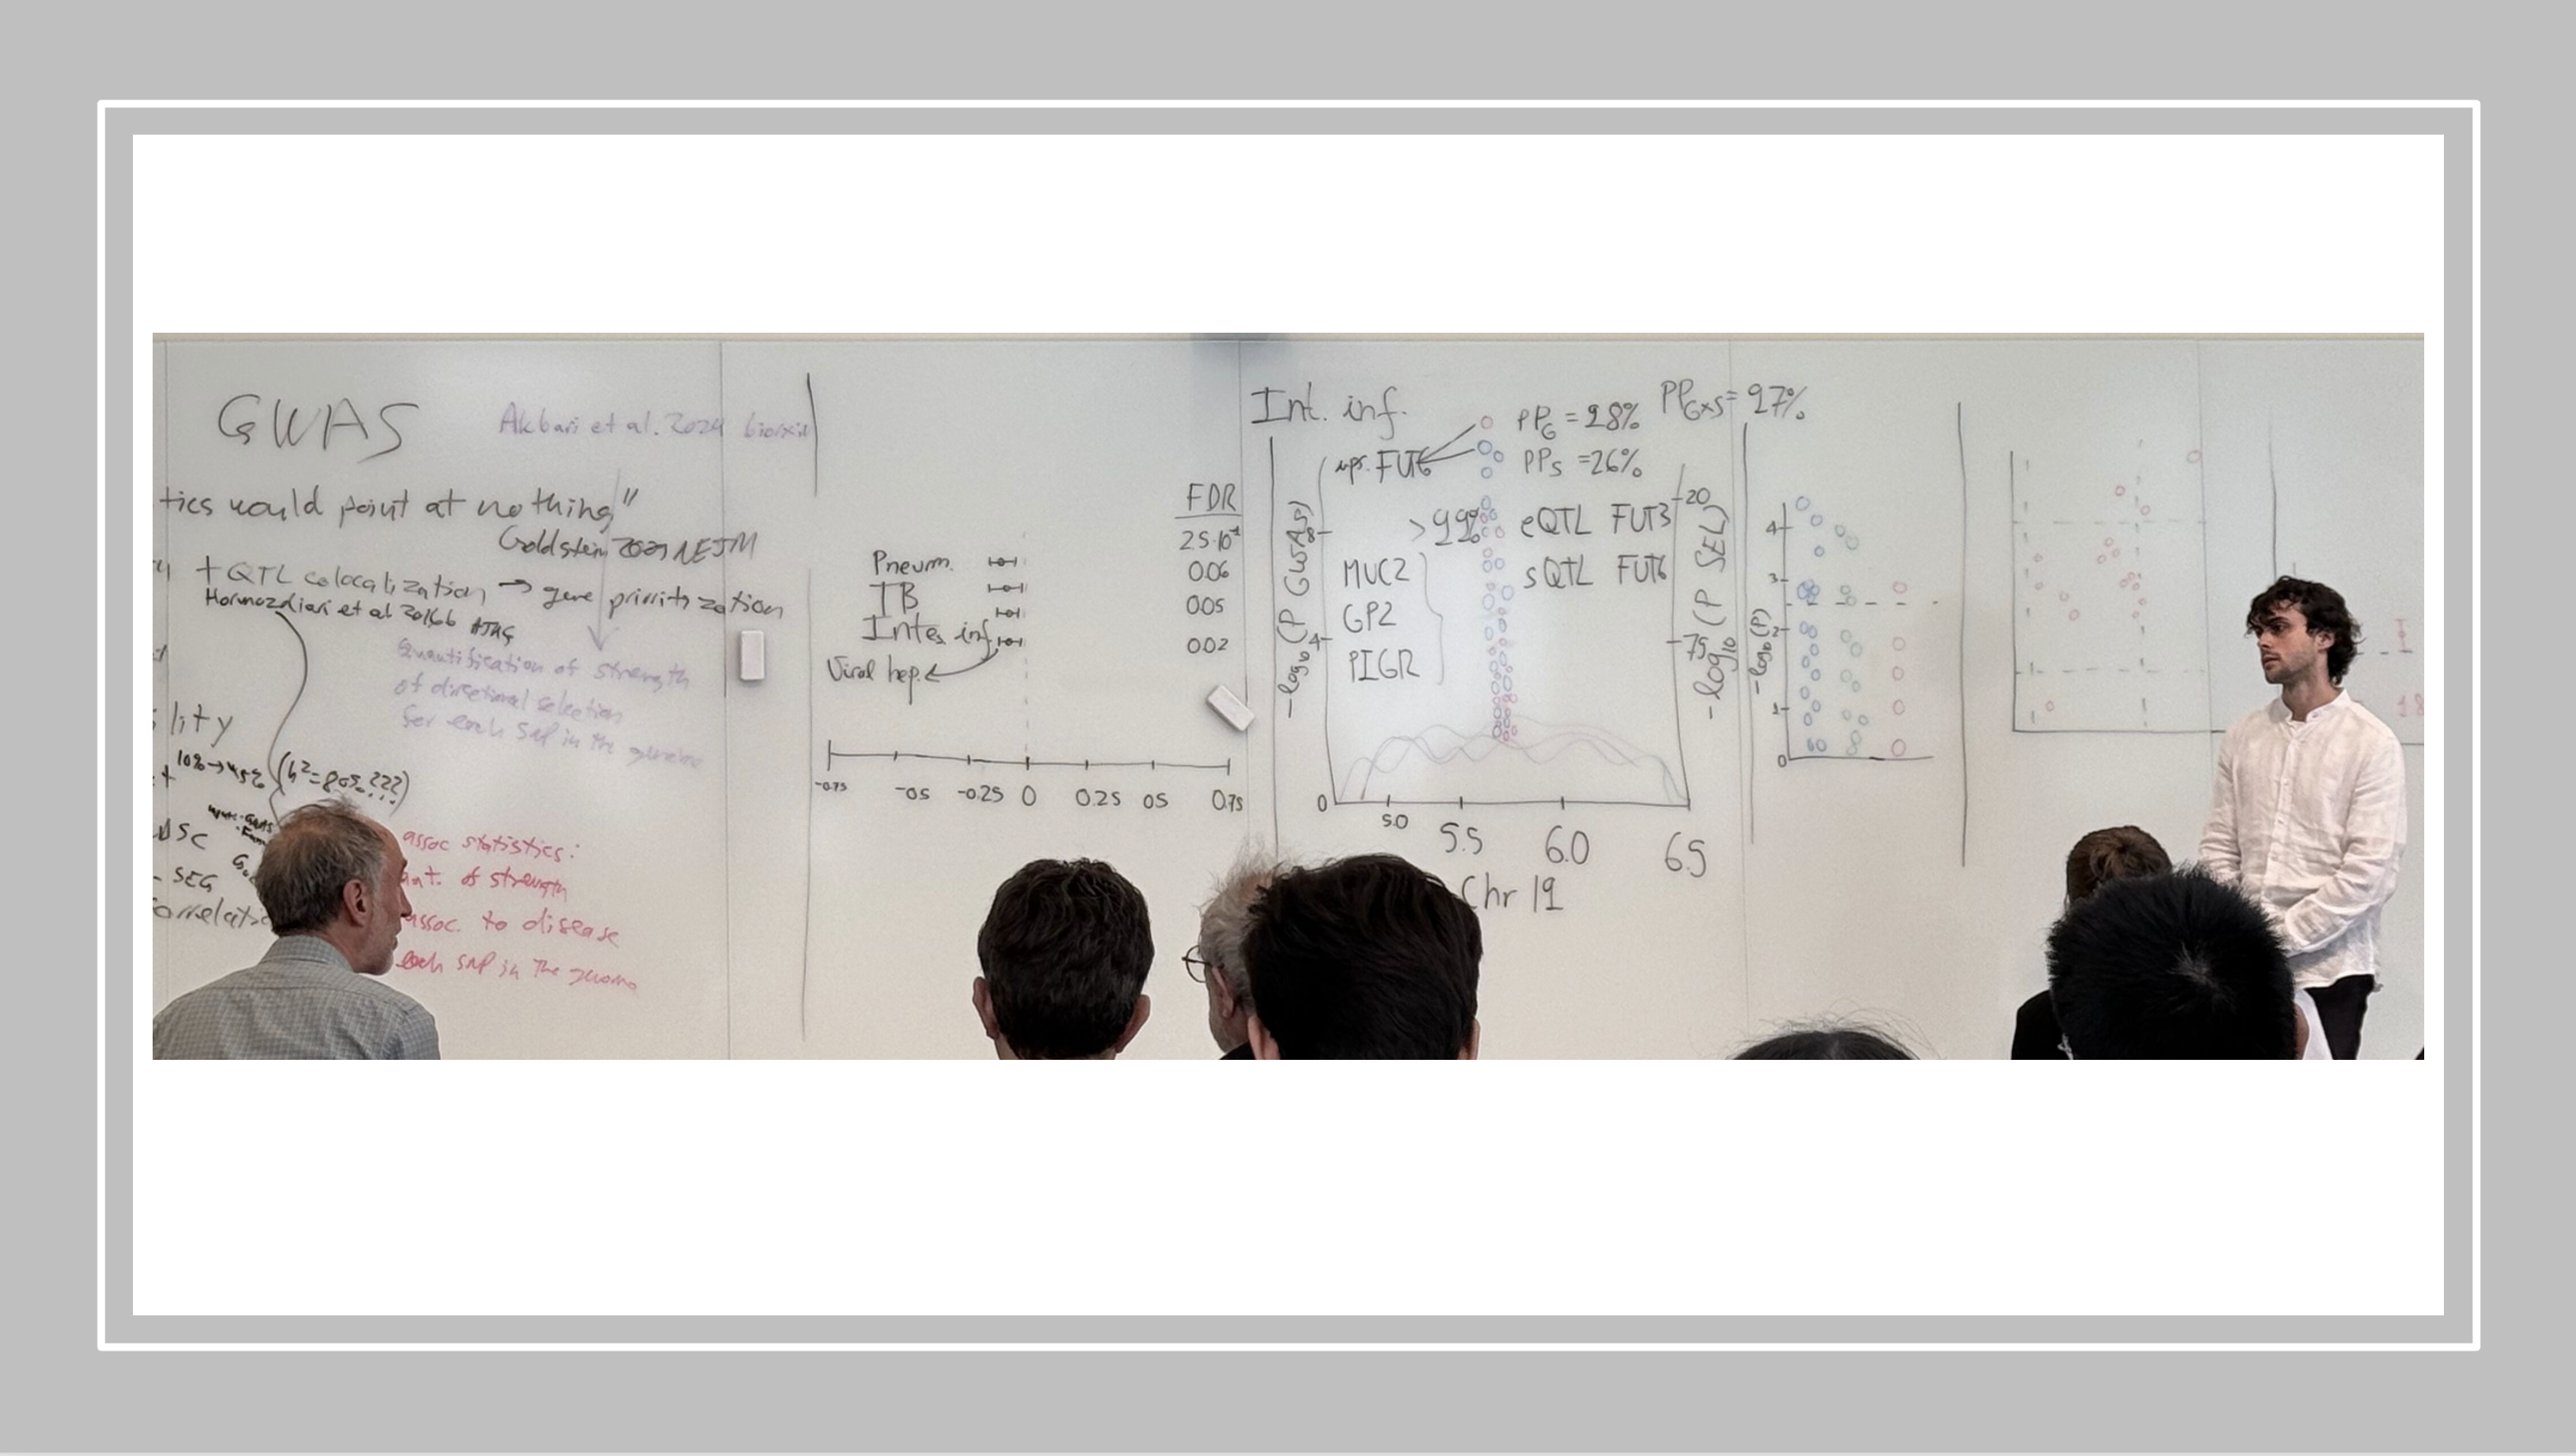 GWAS
Akbari et al. 2024 biorxiv
tics would point at nothing"
Goldstein 2009 NEJM
+ QTL colocalization → gene
Hormozdiari et al 2016b AJHG
Quantification of strength
of directional selection
for each SNP in the genome
ility
10% → 45%
(h²=80%...???)
SEG
assoc statistics:
of strength
assoc. to disease
each SNP in the genome
FDR
Pneum.
TB
Intes. inf.
Viral hep.
0.06
0.05
0.02
-0.75 -0.5 -0.25 0 0.25 0.5 0.75
Int. inf.
PP_G = 28%
PP_GxS = 97%
FUT6
PP_S = 26%
>99%
eQTL FUT3
sQTL FUT6
MUC2
GP2
PIGR
-log₁₀(P GWAS)
8
4
0
20
-log₁₀(P SEL)
5.0 5.5 6.0 6.5
Chr 19
-log₁₀(P)
4
3
2
1
0